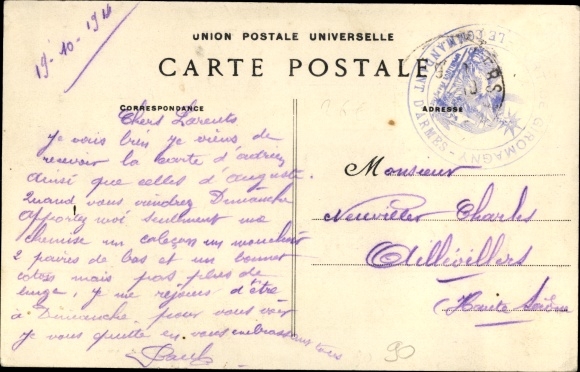 19-10-1914
UNION POSTALE UNIVERSELLE
CARTE POSTALE
CORRESPONDANCE
ADRESSE
Chers Parents
je vais bien je viens de
recevoir la carte d'
ainsi que celles d'Auguste.
Quand vous viendrez Dimanche
Apportez moi seulement une
chemise un caleçon un mouchoir
2 paires de bas et un bonnet
coton mais pas plus de
linge, je me réjouis d'être
à Dimanche pour vous voir
je vous quitte en vous embrassant tous
Paul
Monsieur
Neuviller Charles
Aillevillers
Haute Saône
90
GIROMAGNY